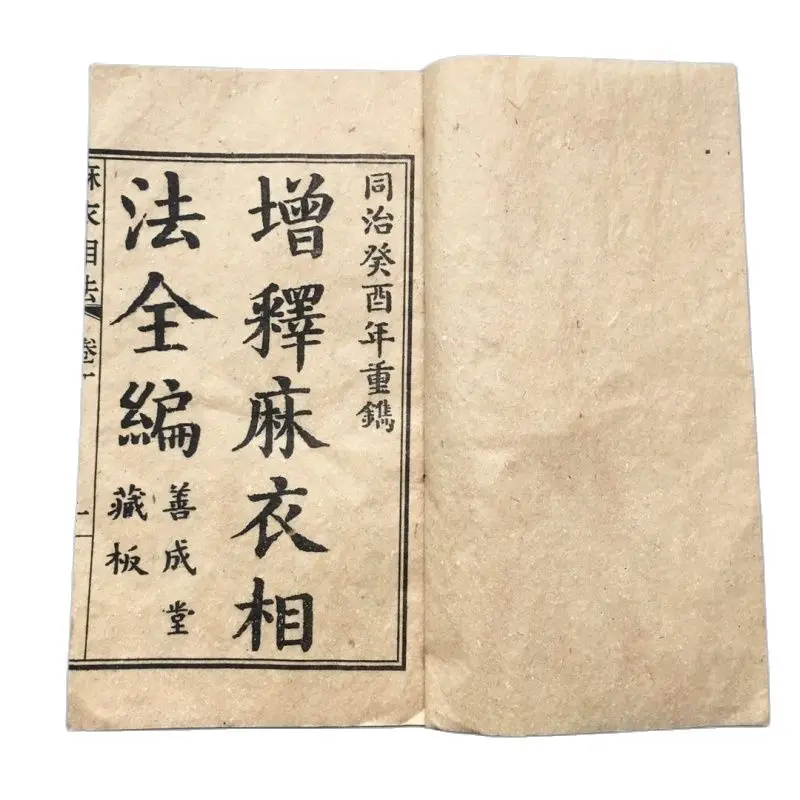 同治癸酉年重鐫
增釋麻衣相
法全編
善成堂
藏板
麻衣相法
卷一